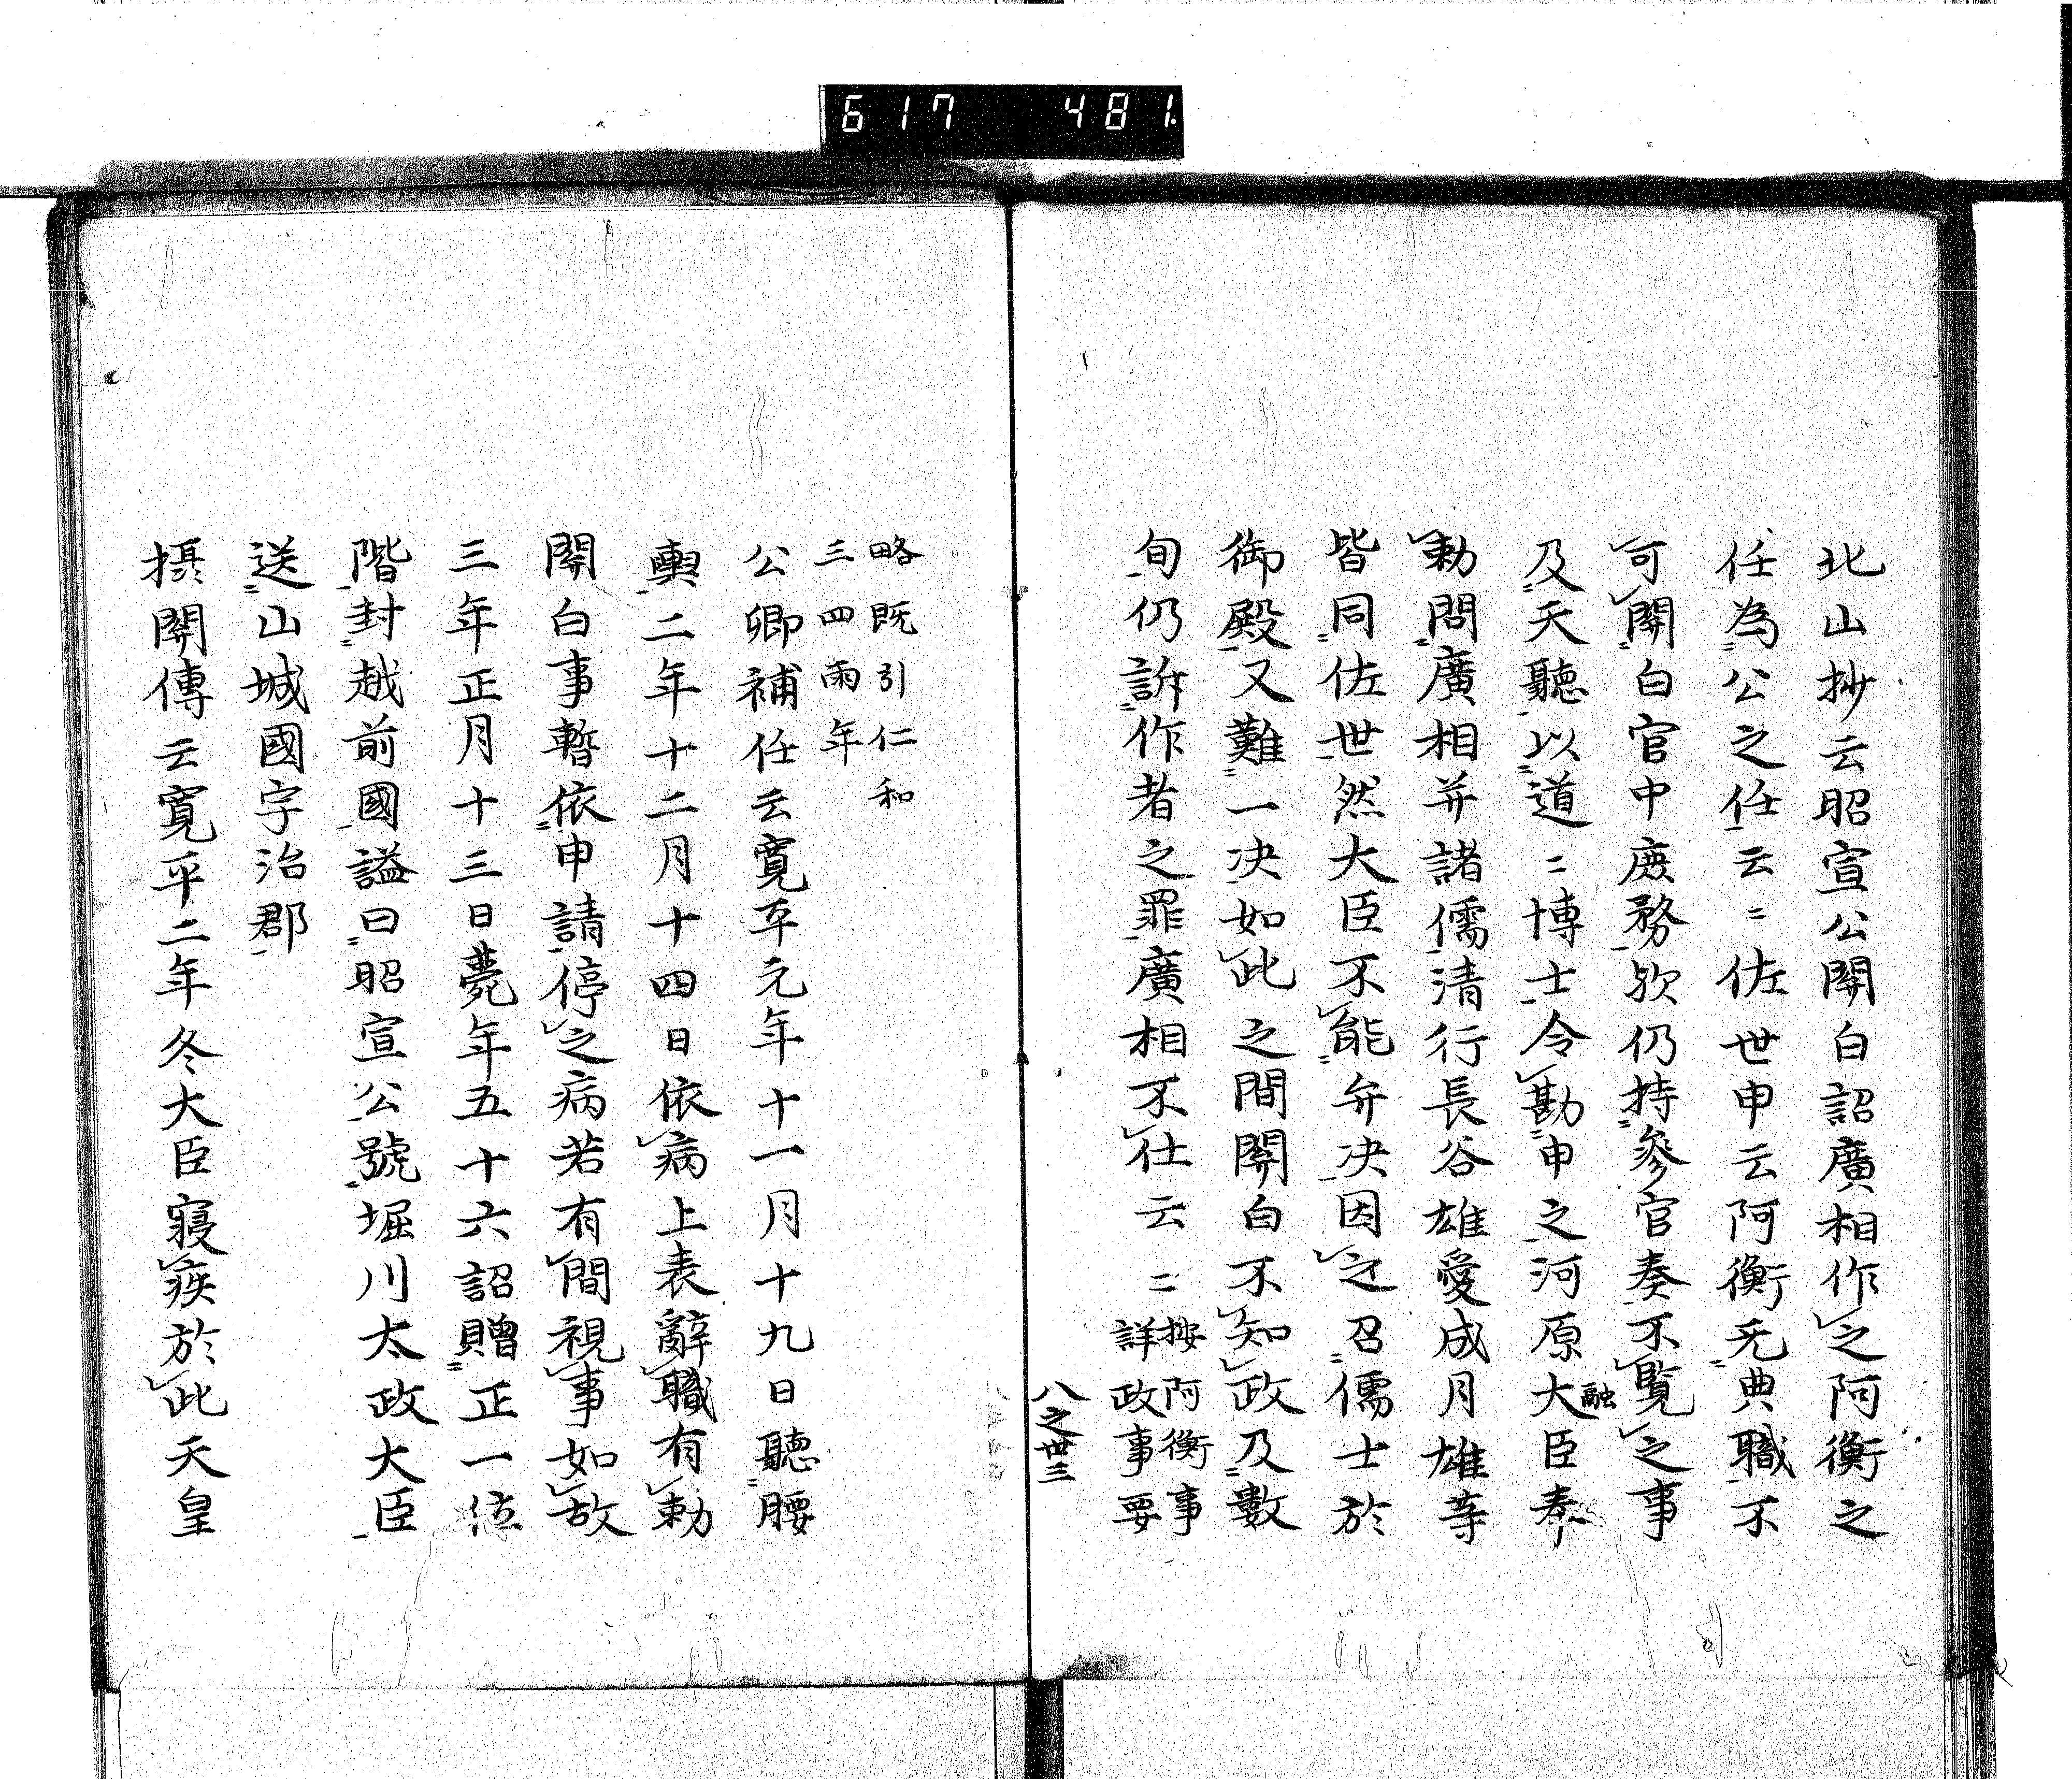 617 481
北山抄云昭宣公関白詔廣相作之阿衡之
任為公之任云〻佐世申云阿衡无典職不
可関白官中庶務欤仍持參官奏不覧之事
及天聽以道〻博士令勘申之河原大臣融奉
勅問廣相并諸儒清行長谷雄愛成月雄等
皆同佐世然大臣不能弁决因之召儒士於
御殿又難一决如此之間関白不知政及數
旬仍訴作者之罪廣相不仕云〻
按阿衡事
詳政事要
八之卅三
略既引仁和
三四兩年
公卿補任云寛平元年十一月十九日聽腰
輿二年十二月十四日依病上表辭職有勅
関白事暫依申請停之病若有間視事如故
三年正月十三日薨年五十六詔贈正一位
階封越前國謚曰昭宣公號堀川太政大臣
送山城國宇治郡
摂関傳云寛平二年冬大臣寝疾於此天皇